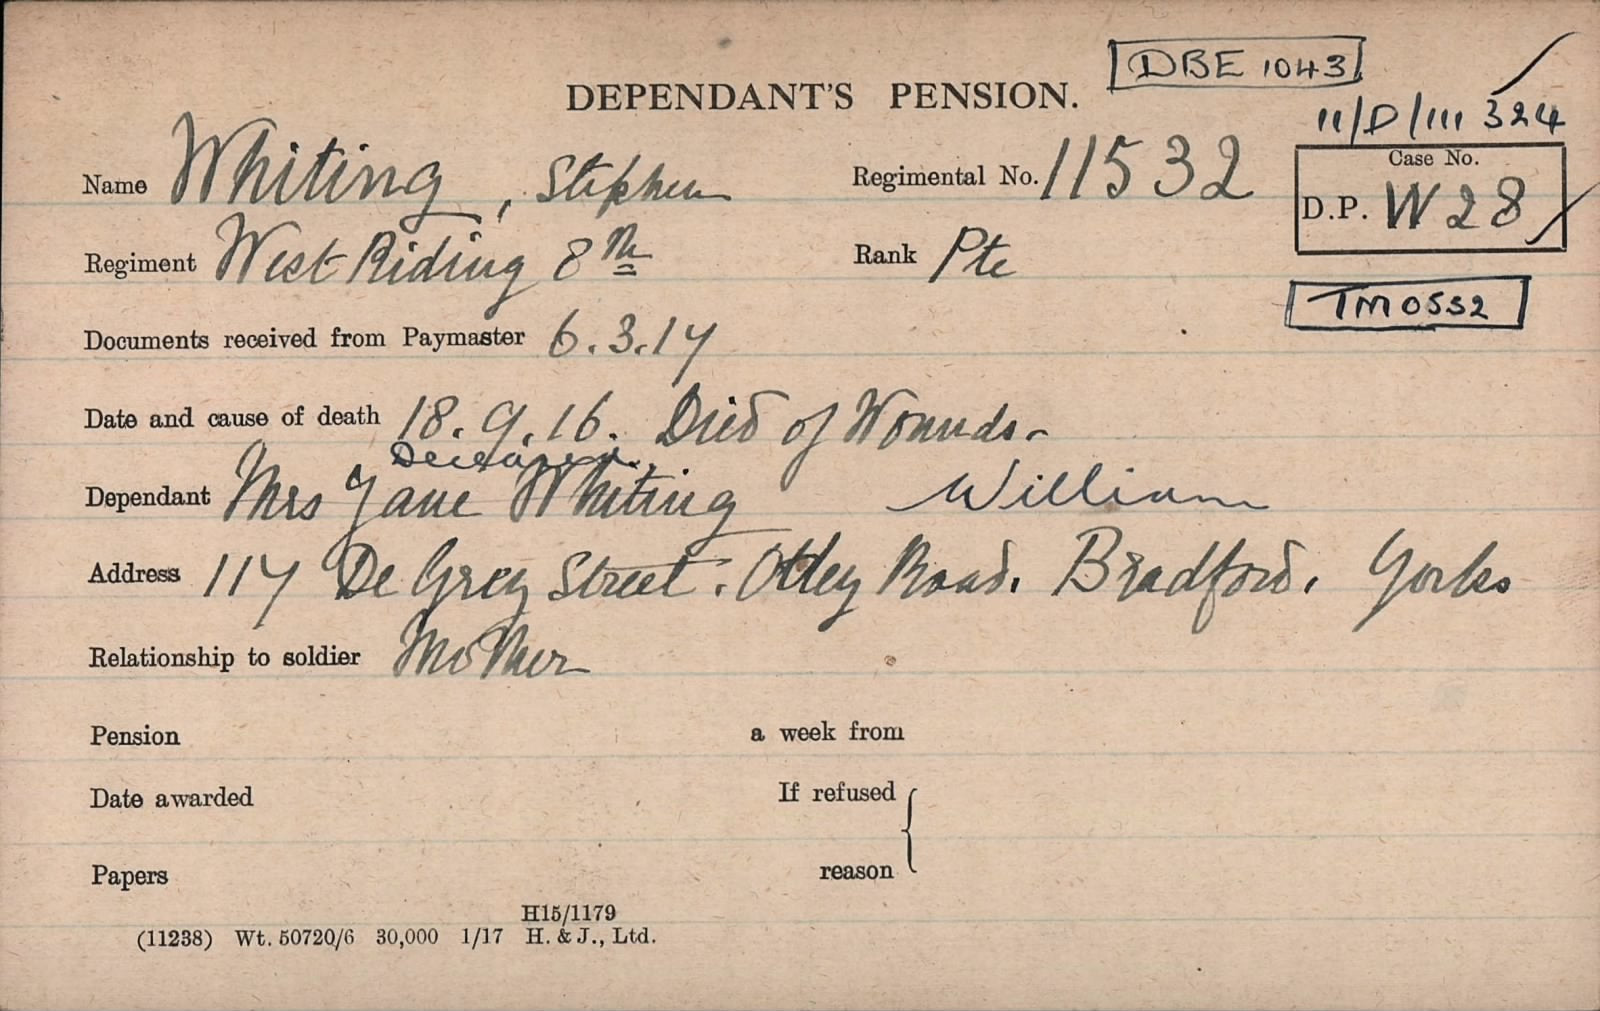 DBE 1043
DEPENDANT'S PENSION.
11/D/111 324
Name Whiting, Stephen Regimental No. 11532
Case No.
D.P. W28
Regiment West Riding 8th Rank Pte
TM0552
Documents received from Paymaster 6.3.17
Date and cause of death 18.9.16. Died of Wounds.
Deceased.
Dependant Mrs Jane Whiting William
Address 117 De Grey Street. Otley Road. Bradford. Yorks
Relationship to soldier Mother
Pension a week from
Date awarded If refused
Papers reason
H15/1179
(11238) Wt. 50720/6 30,000 1/17 H. & J., Ltd.